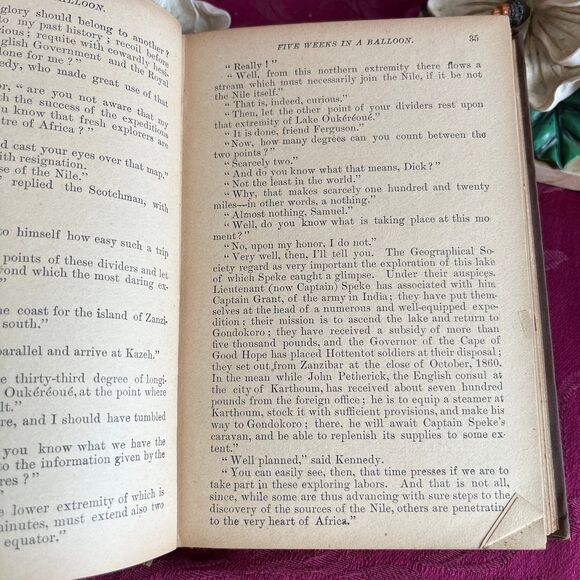 BALLOON.
glory should belong to another?
to my past history; recoil before
rious; requite with cowardly hesi-
nglish Government and the Royal
done for me?"
edy, who made great use of that
or, "are you not aware that my
th the success of the expeditions
ou know that fresh explorers are
tre of Africa?"
d cast your eyes over that map."
ith resignation.
se of the Nile."
replied the Scotchman, with
to himself how easy such a trip
points of these dividers and let
yond which the most daring ex-
e coast for the island of Zanzi-
south."
parallel and arrive at Kazeh."
e thirty-third degree of longi-
Oukéréoué, at the point where
lt."
re, and I should have tumbled
you know what we have the
to the information given by the
res?"
e lower extremity of which is
minutes, must extend also two
equator."
FIVE WEEKS IN A BALLOON. 35
"Really!"
"Well, from this northern extremity there flows a
stream which must necessarily join the Nile, if it be not
the Nile itself."
"That is, indeed, curious."
"Then, let the other point of your dividers rest upon
that extremity of Lake Oukéréoué."
"It is done, friend Ferguson."
"Now, how many degrees can you count between the
two points?"
"Scarcely two."
"And do you know what that means, Dick?"
"Not the least in the world."
"Why, that makes scarcely one hundred and twenty
miles—in other words, a nothing."
"Almost nothing, Samuel."
"Well, do you know what is taking place at this mo-
ment?"
"No, upon my honor, I do not."
"Very well, then, I'll tell you. The Geographical So-
ciety regard as very important the exploration of this lake
of which Speke caught a glimpse. Under their auspices,
Lieutenant (now Captain) Speke has associated with him
Captain Grant, of the army in India; they have put them-
selves at the head of a numerous and well-equipped expe-
dition; their mission is to ascend the lake and return to
Gondokoro; they have received a subsidy of more than
five thousand pounds, and the Governor of the Cape of
Good Hope has placed Hottentot soldiers at their disposal;
they set out from Zanzibar at the close of October, 1860.
In the mean while John Petherick, the English consul at
the city of Karthoum, has received about seven hundred
pounds from the foreign office; he is to equip a steamer at
Karthoum, stock it with sufficient provisions, and make his
way to Gondokoro; there, he will await Captain Speke's
caravan, and be able to replenish its supplies to some ex-
tent."
"Well planned," said Kennedy.
"You can easily see, then, that time presses if we are to
take part in these exploring labors. And that is not all,
since, while some are thus advancing with sure steps to the
discovery of the sources of the Nile, others are penetrating
to the very heart of Africa."